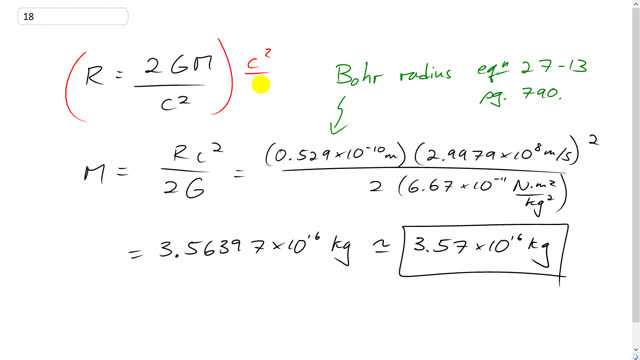 18
( R = 2GM / c² ) c² /
Bohr radius eqⁿ 27-13
pg. 790.
M = Rc² / 2G = (0.529×10⁻¹⁰ m) (2.9979×10⁸ m/s)² / 2 (6.67×10⁻¹¹ N·m²/kg²)
= 3.56397×10¹⁶ kg ≃ 3.57×10¹⁶ kg